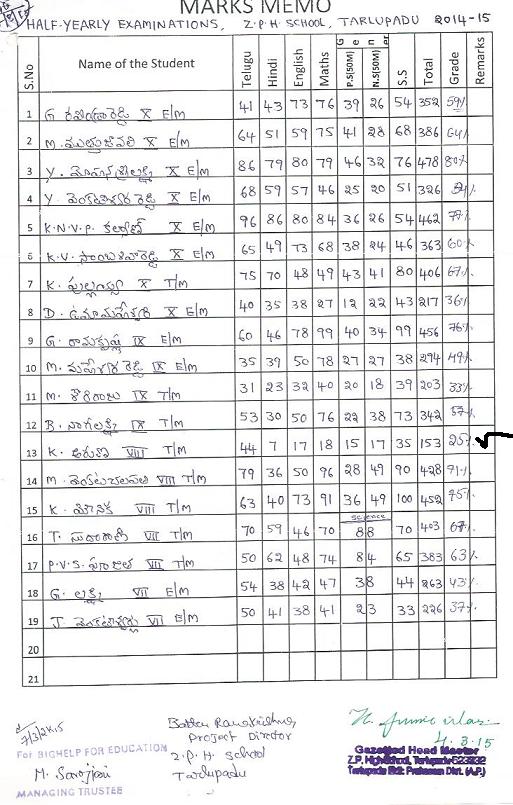 MARKS MEMO
HALF-YEARLY EXAMINATIONS, Z.P.H SCHOOL, TARLUPADU 2014-15
S.No Name of the Student Telugu Hindi English Maths Gener P.S(50M) N.S(50M) S.S Total Grade Remarks
1 G X E/M 41 43 73 76 39 26 54 352 59%
2 M. X E/M 64 51 59 75 41 28 68 386 64%
3 Y. X E/M 86 79 80 79 46 32 76 478 80%
4 Y. వెంకటేశ్వర రెడ్డి X E/M 68 59 57 46 25 20 51 326
5 K.N.V.P. కళ్యాణ్ X E/M 96 86 80 84 36 26 54 462 77%
6 K.V. సాంబశివారెడ్డి X E/M 65 49 73 68 38 24 46 363 60%
7 K. పుల్లయ్య X T/M 75 70 48 49 43 41 80 406 67%
8 D. ఉమామహేశ్వరి X E/M 40 35 38 27 12 22 43 217 36%
9 G. రామకృష్ణ IX E/M 60 46 78 99 40 34 99 456 76%
10 M. మహేశ్వర రెడ్డి IX E/M 35 39 50 78 27 27 38 294 49%
11 M. శౌరిరాజు IX T/M 31 23 32 40 20 18 39 203 33%
12 B. నాగలక్ష్మి IX T/M 53 30 50 76 22 38 73 342 57%
13 K. అరుణ VIII T/M 44 7 17 18 15 17 35 153 25%
14 M. వెంకటాచలపతి VIII T/M 79 36 50 96 28 49 90 428 71%
15 K. మౌనిక VIII T/M 63 40 73 91 36 49 100 452 75%
Science
16 T. సుధారాణి VII T/M 70 59 46 70 88 70 403 67%
17 P.V.S. T/M 50 62 48 74 84 65 383 63%
18 G. లక్ష్మి VII E/M 54 38 42 47 38 44 263 43%
19 J. వెంకటేశ్వర్లు VII E/M 50 41 38 41 23 33 226 37%
20
21
7/3/2k15
For BIGHELP FOR EDUCATION
M. Sarojini
MANAGING TRUSTEE
Project Director
Z.P.H School
Tarlupadu
4.3.15
Gazetted Head Master
Z.P. High School, Tarlupadu-523332
Tarlupadu Prakasam Dist. (A.P.)